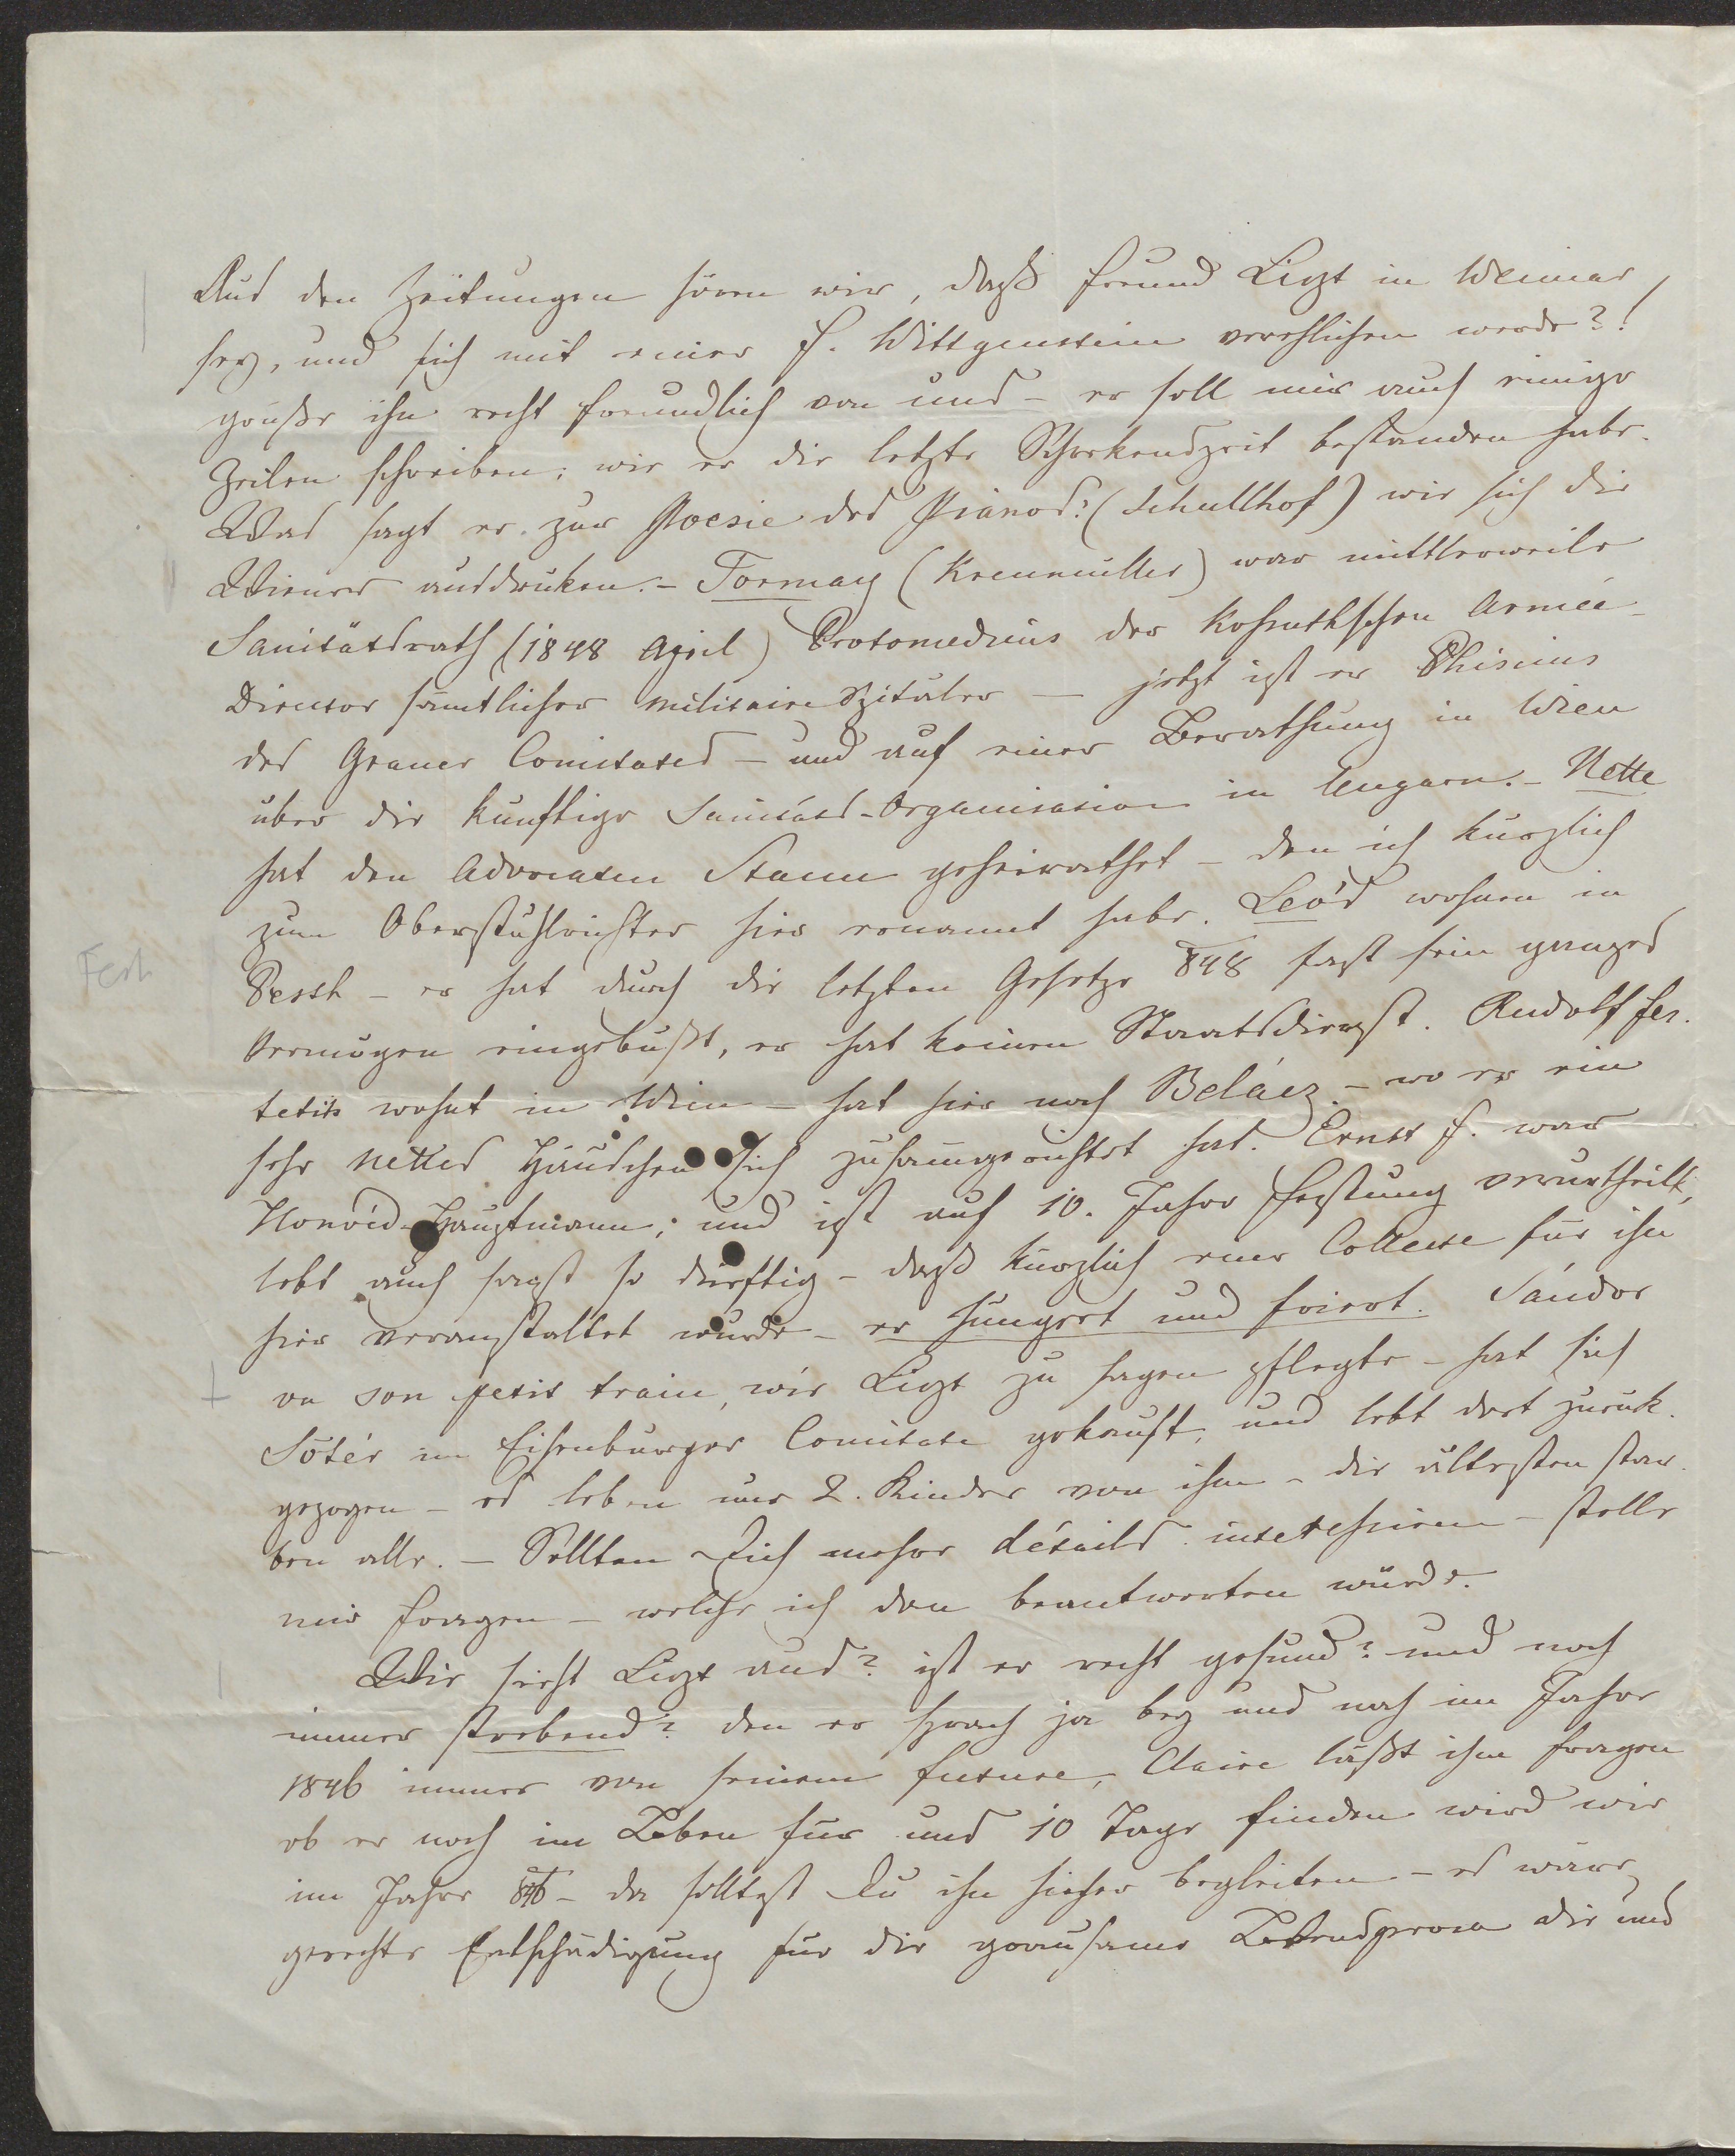 Aus den Zeitungen hören wir, daß Freund Liszt in Weimar
sey, und sich mit einer F. Wittgenstein verehlichen werde?!
grüße ihn recht freundlich von uns – er soll mir auch einige
Zeilen schreiben; wie er die letzte Schrekenszeit bestanden habe.
Was sagt er zur Poesie des Pianos? (Schullhof) wie sich die
Wiener ausdruken. – Tormay (Krenmüller) war mittlerweile
Sanitätsrath (1848 April) Protomedicus der Koßuthschen Armée
Director sämtlicher militaire Spitäler — jetzt ist er Phisicus
des Graner Comitates – und auf einer Berathung in Wien
über die künftige Sanitäts-Organisation in Ungarn. – Nette
hat den Advocaten Stamm geheirathet – den ich kürzlich
zum Oberstuhlrichter hier ernannt habe. Leó's wohnen in
Pesth – er hat durch die letzten Gesetze 848 fast sein ganzes
Vermögen eingebüßt, er hat keinen Staatsdienst. Rudolf Fes.
tetits wohnt in Wien – hat hier noch Belácz – wo er ein
sehr nettes Häuschen sich zusamgerichtet hat. Ernst F. war
Honvéd-Hauptmann; und ist auf 10. Jahre Festung verurtheilt,
lebt auch sonst so dürftig – daß kürzlich eine Collecte für ihn
hier veranstaltet wurde – er hungert und friert. Sándor
va son petit train, wie Liszt zu sagen pflegte – hat sich
Sótér im Eisenburger Comitate gekauft, und lebt dort zurük.
gezogen – es leben nur 2. Kinder von ihm – die ältesten star.
ben alle. – Sollten Dich mehre détails interessiren – stelle
mir Fragen – welche ich dan beantworten würde.
Wie sieht Liszt aus? ist er recht gesund? und noch
immer strebend? den er sprach ja bey uns noch im Jahre
1846 immer von seinem future, Claire läßt ihn fragen
ob er noch im Leben für uns 10 Tage finden wird wie
im Jahre 846 – da solltest Du ihn hieher begleiten – es wäre
gerechte Entschädigung für die grausame Lebensprosa die uns
Fest